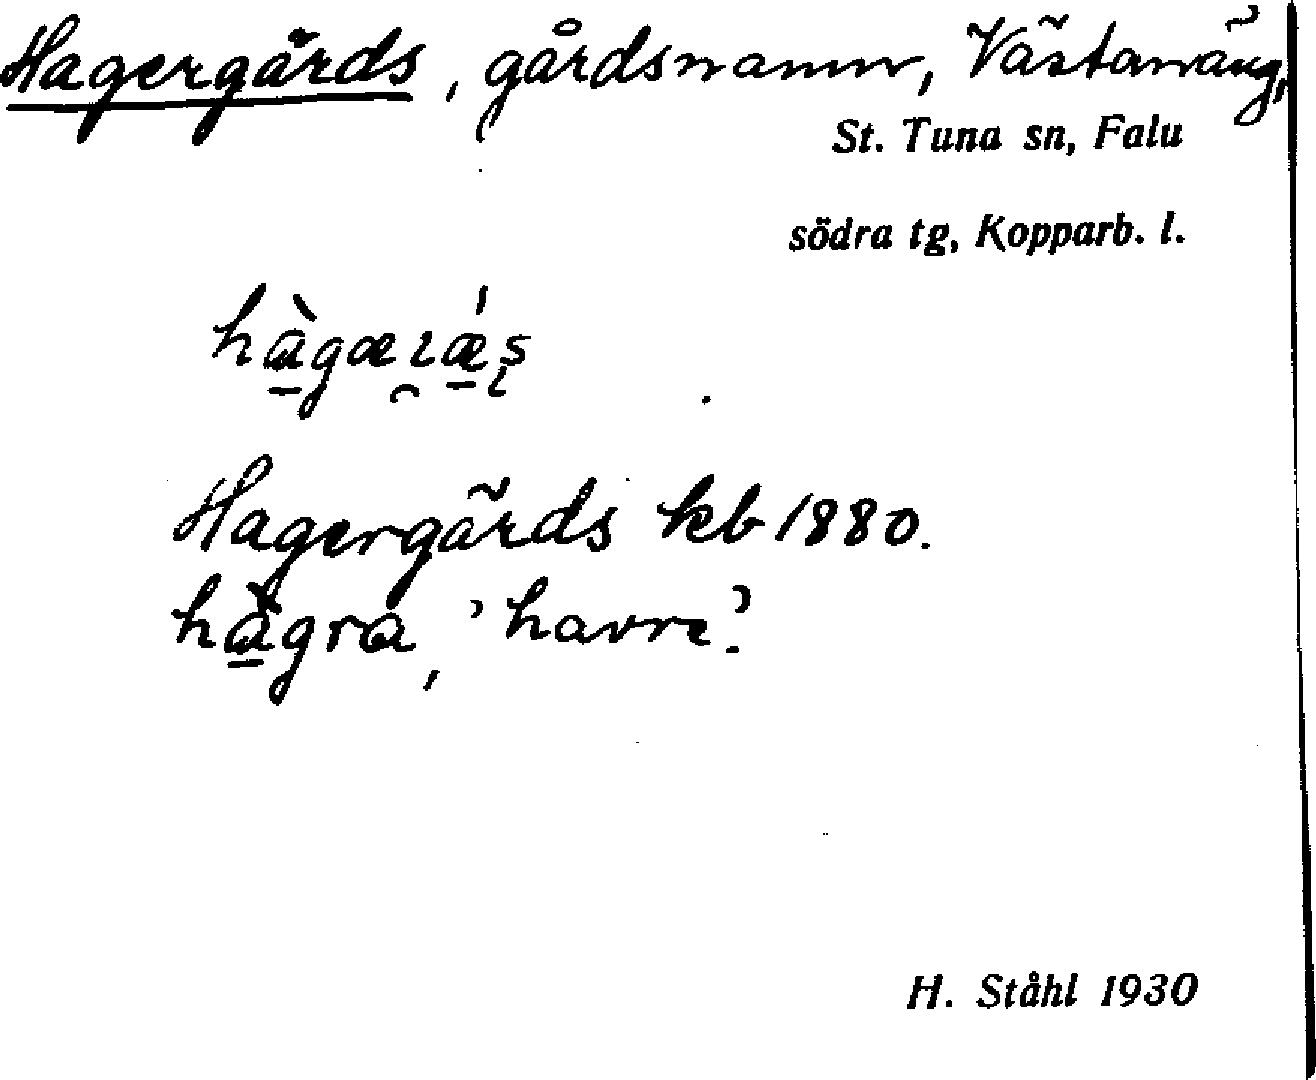 Hagergårds, gårdsnamn, Västanäng,
St. Tuna sn, Falu
södra tg, Kopparb. l.
Hagergårds kb 1880.
hạ̀gra, 'havre'.
H. Ståhl 1930